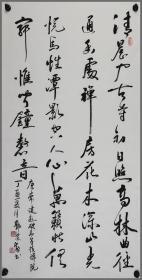 清晨入古寺初日照高林曲径
通幽處禅房花木深山光
悦鸟性潭影空人心萬籁此俱
寂惟闻鐘磬音
唐常建破山寺後禅院
丁酉